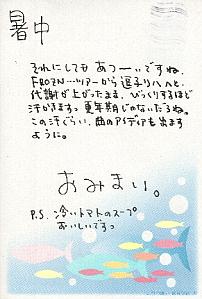 暑中
それにしてもあつーいですね。
FROZN…ツアーから逗子リハへと、
代謝が上がったまま、びっくりするほど
汗がでますっ 更年期じゃないだろね。
この汗ぐらい、曲のアイディアも出ます
ように。
おみまい。
P.S. 冷いトマトのスープ
おいしいですっ